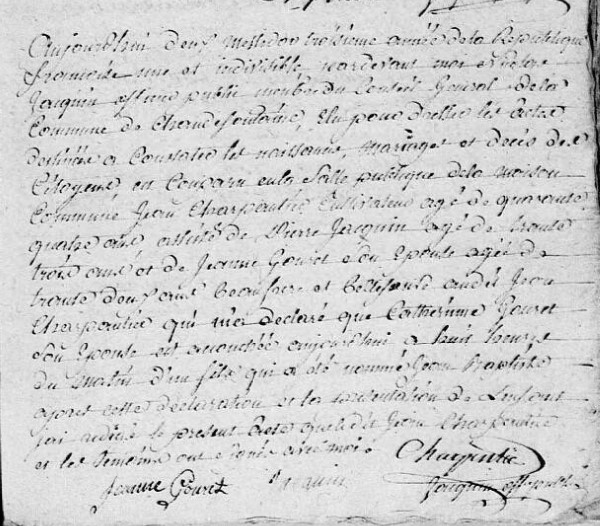 Aujourdhui deux Messidor troisieme année de la Republique
francoise une et indivisible pardevant moi
Jacquin officier public membre du Conseil General de la
Commune de Chaudefontaine, Elu pour dresser les actes
destinés a Constater les naissances, Mariages et décès des
Citoyens, en Comparu en la Salle publique de la maison
Commune Jean Charpentier Cultivateur agé de quarante
quatre ans assisté de Pierre Jacquin agé de trente
trois ans et de Jeanne Gouret son Epouse agée de
trente deux ans Beaufrere et Bellesoeur audit Jean
Charpentier qui m'a declaré que Catherinne Gouret
son Epouse est accouchée aujourdhui a huit heures
du matin d'un fils qui a été nommé Jean Baptiste
apres cette déclaration et la presentation de L'enfant
j'ai redigé le present acte que ledit Jean Charpentier
et les temoins ont signés avec moi Charpentier
Jeanne Gouret Jacquin Jacquin officier